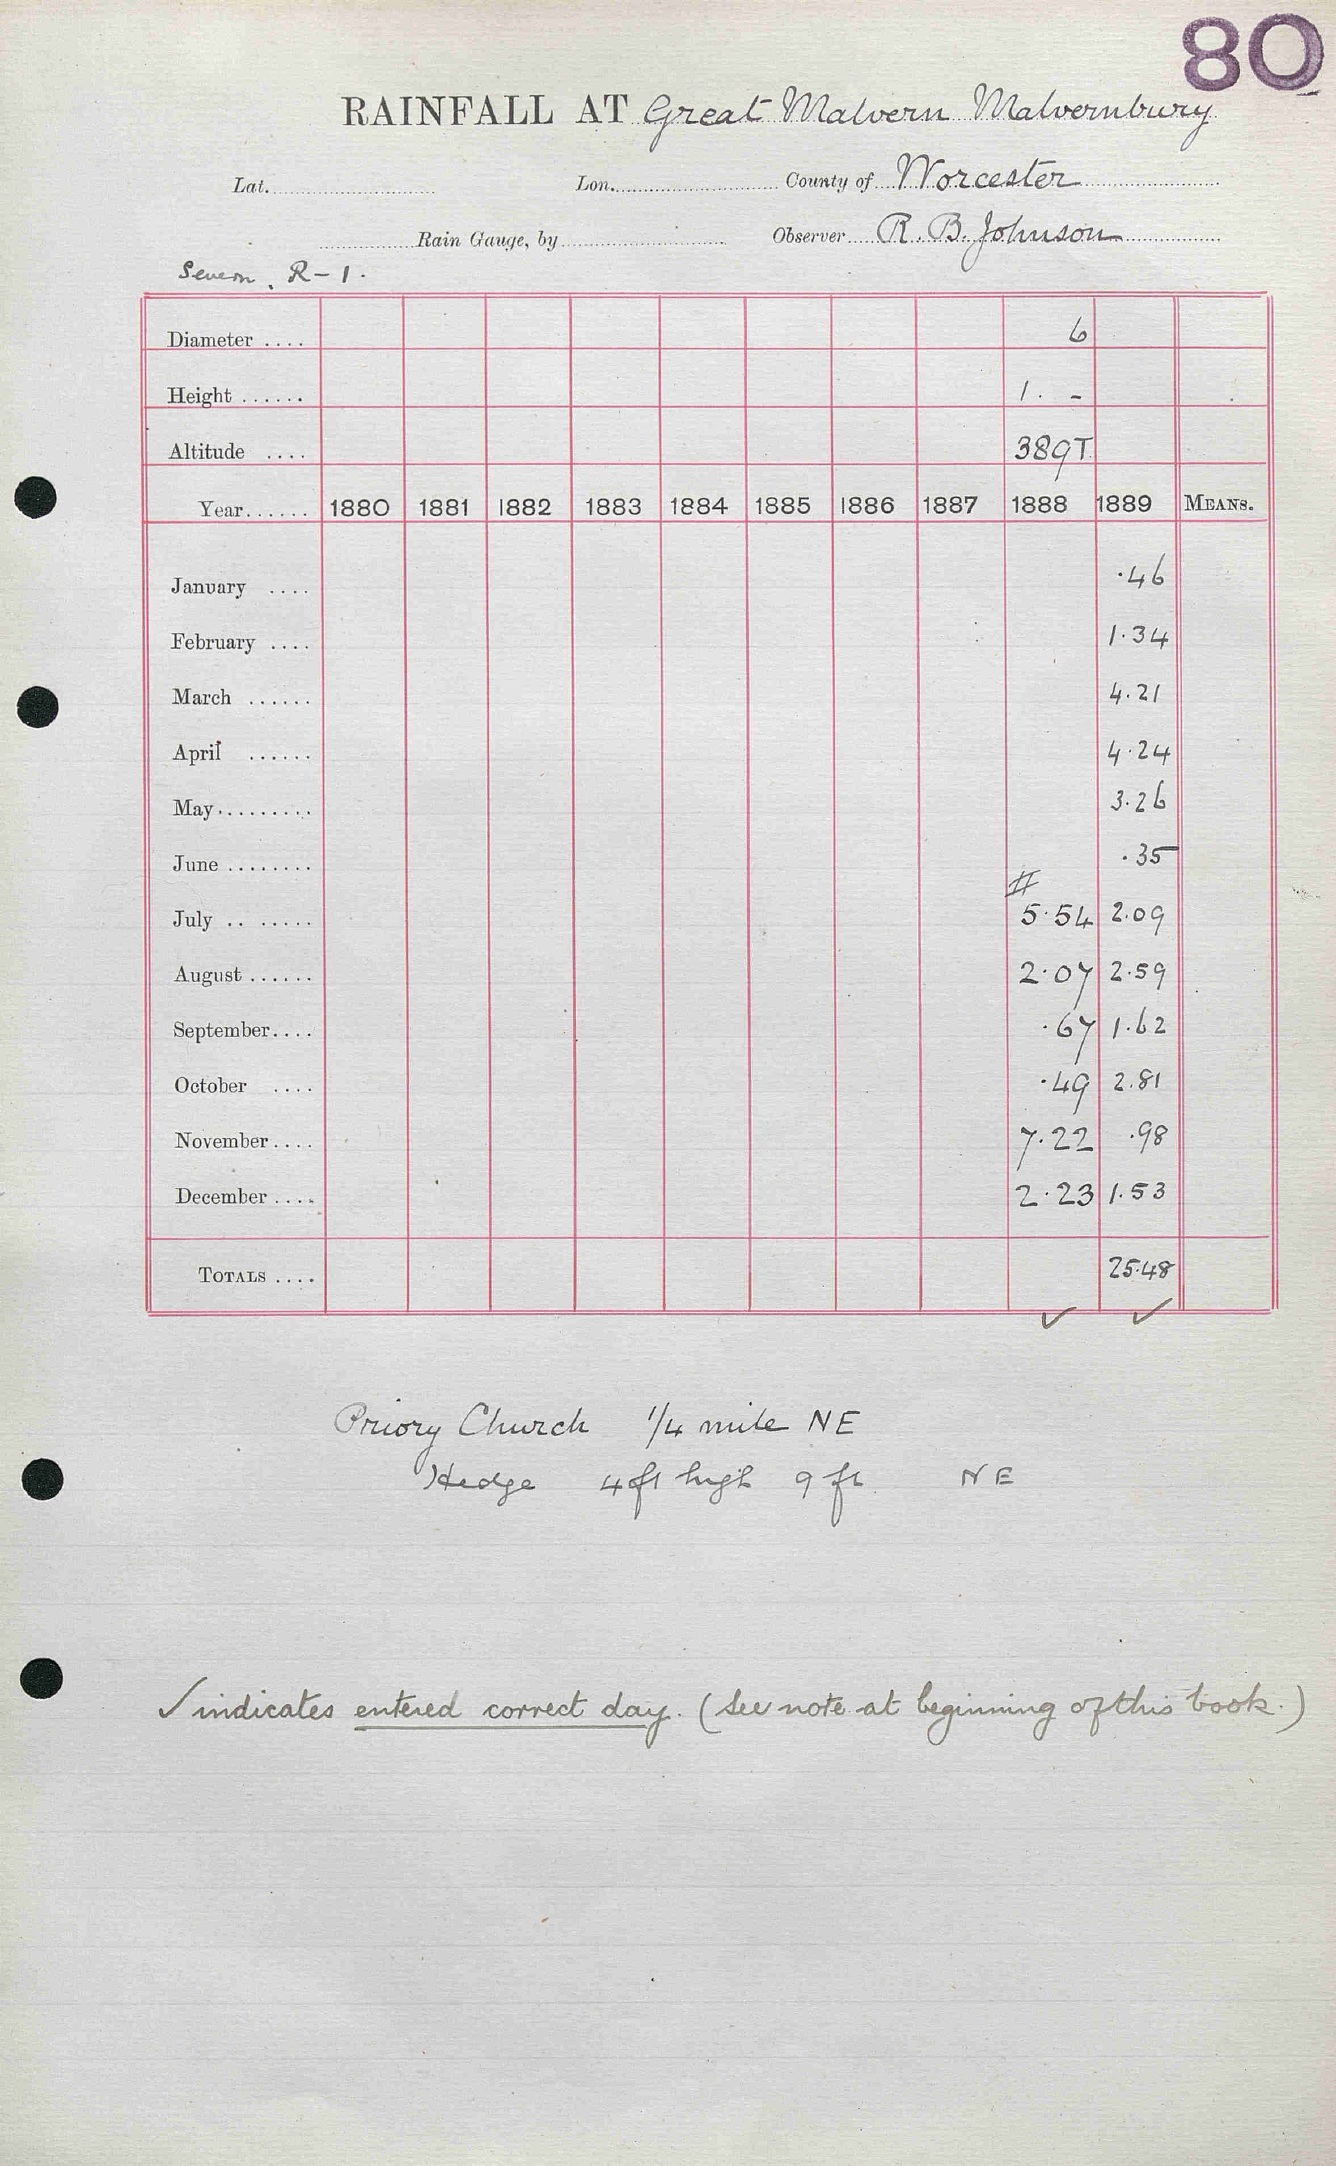 80
RAINFALL AT Great Malvern Malvernbury
Lat. Lon. County of Worcester
Rain Gauge, by Observer R. B. Johnson
Severn. R-1.
Diameter .... 6
Height ...... 1. -
Altitude .... 389T
Year...... 1880 1881 1882 1883 1884 1885 1886 1887 1888 1889 MEANS.
January .... ·46
February .... 1·34
March ...... 4·21
April ...... 4·24
May......... 3·26
June ........ ·35
#
July .. ..... 5·54 2·09
August ...... 2·07 2·59
September.... ·67 1·62
October .... ·49 2·81
November.... 7·22 ·98
December .... 2·23 1·53
TOTALS .... 25·48
✓ ✓
Priory Church 1/4 mile NE
Hedge 4ft high 9 ft NE
✓ indicates entered correct day. (See note at beginning of this book.)